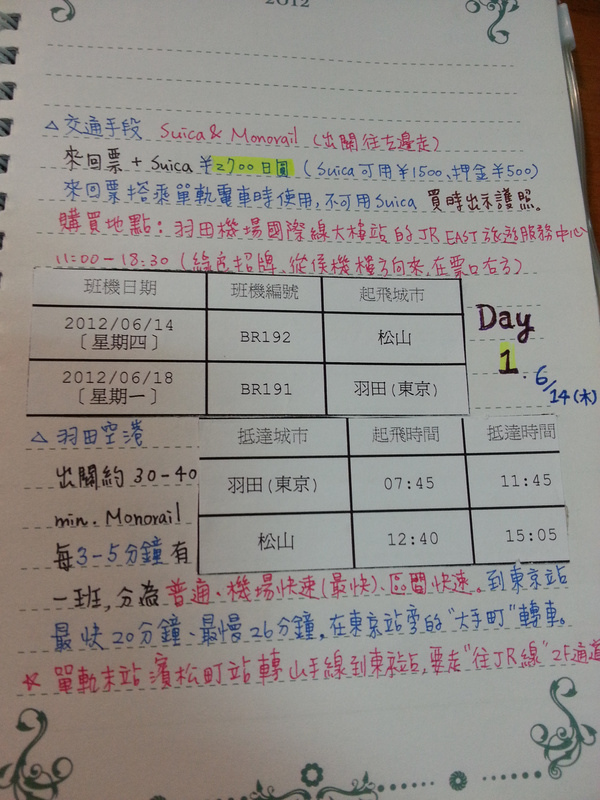 2012
△交通手段 Suica & Monorail (出關往左邊走)
來回票 + Suica ¥2700日圓 (Suica可用¥1500、押金¥500)
來回票搭乘單軌電車時使用,不可用Suica 買時出示護照。
購買地點:羽田機場國際線大樓站的JR EAST旅遊服務中心
11:00-18:30 (綠色招牌,從候機樓方向來,在票口右方)
班機日期 班機編號 起飛城市
2012/06/14 BR192 松山
〔星期四〕
2012/06/18 BR191 羽田(東京)
〔星期一〕
Day
1
6/14(木)
△羽田空港
抵達城市 起飛時間 抵達時間
羽田(東京) 07:45 11:45
松山 12:40 15:05
出關約30-40
min. Monorail
每3-5分鐘有
一班,分為普通、機場快速(最快)、區間快速。到東京站
最快20分鐘、最慢26分鐘,在東京站旁的"大手町"轉車。
☆ 單軌末站濱松町站轉山手線到東京站,要走"往JR線"2F通道